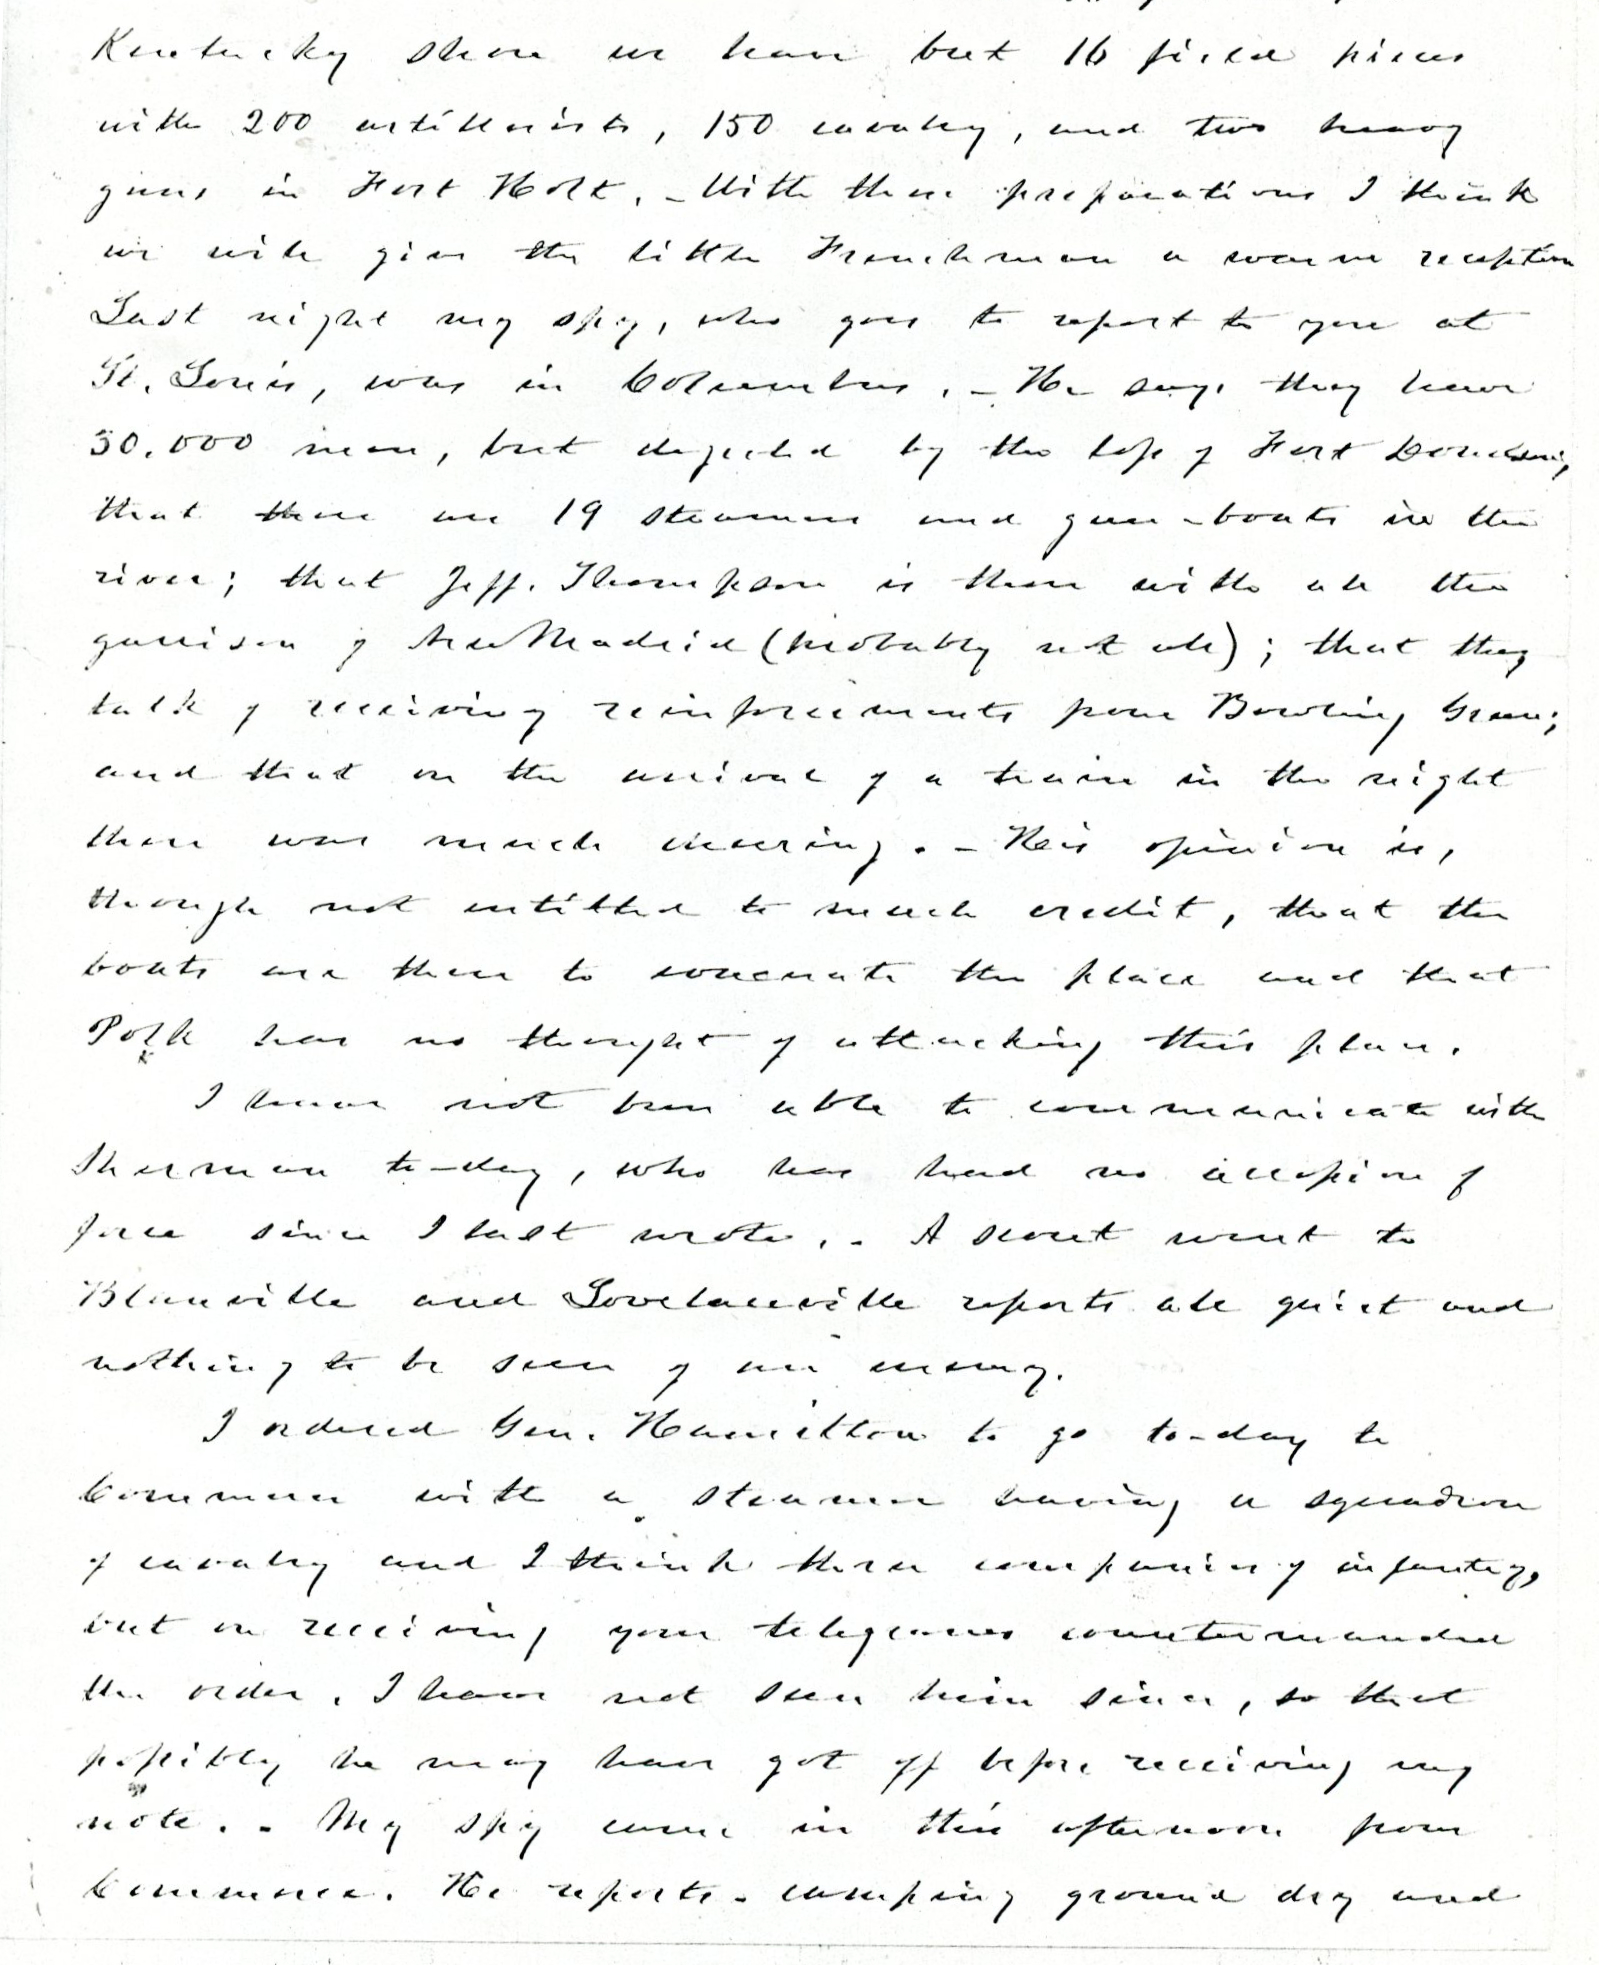 Kentucky shore we have but 16 field pieces
with 200 artillerists, 150 cavalry, and two heavy
guns in Fort Holt. - With these preparations I think
we will give the little Frenchman a warm reception
Last night my spy, who goes to report to you at
St. Louis, was in Columbus. - He says they have
30.000 men, but dejected by the loss of Fort Donelson,
that there are 19 steamers and gun-boats in the
river; that Jeff. Thompson is there with all the
garrison of New Madrid (probably not all); that they
talk of receiving reinforcements from Bowling Green;
and that on the arrival of a train in the night
there was much cheering. - His opinion is,
though not entitled to much credit, that the
boats are there to evacuate the place and that
Polk has no thought of attacking this place.
I have not been able to communicate with
Sherman to-day, who has had no accession of
force since I last wrote. - A scout went to
Blanville and Lovelaceville reports all quiet and
nothing to be seen of an enemy.
I ordered Gen. Hamilton to go to-day to
Commerce with a steamer having a squadron
of cavalry and I think three companies of infantry,
but on receiving your telegrams countermanded
the order. I have not seen him since, so that
possibly he may have got off before receiving my
note. - My spy came in this afternoon from
Commerce. He reports - camping ground dry and